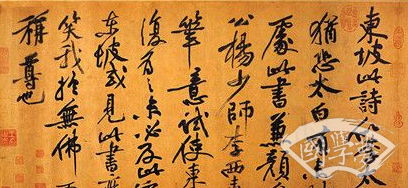 東坡此詩似李太
猶恐太白有未
處此書兼顏
公楊少師李西
筆意試使東
復為之未必及此
東坡或見此書應
笑我於無佛
稱尊也
國學夢